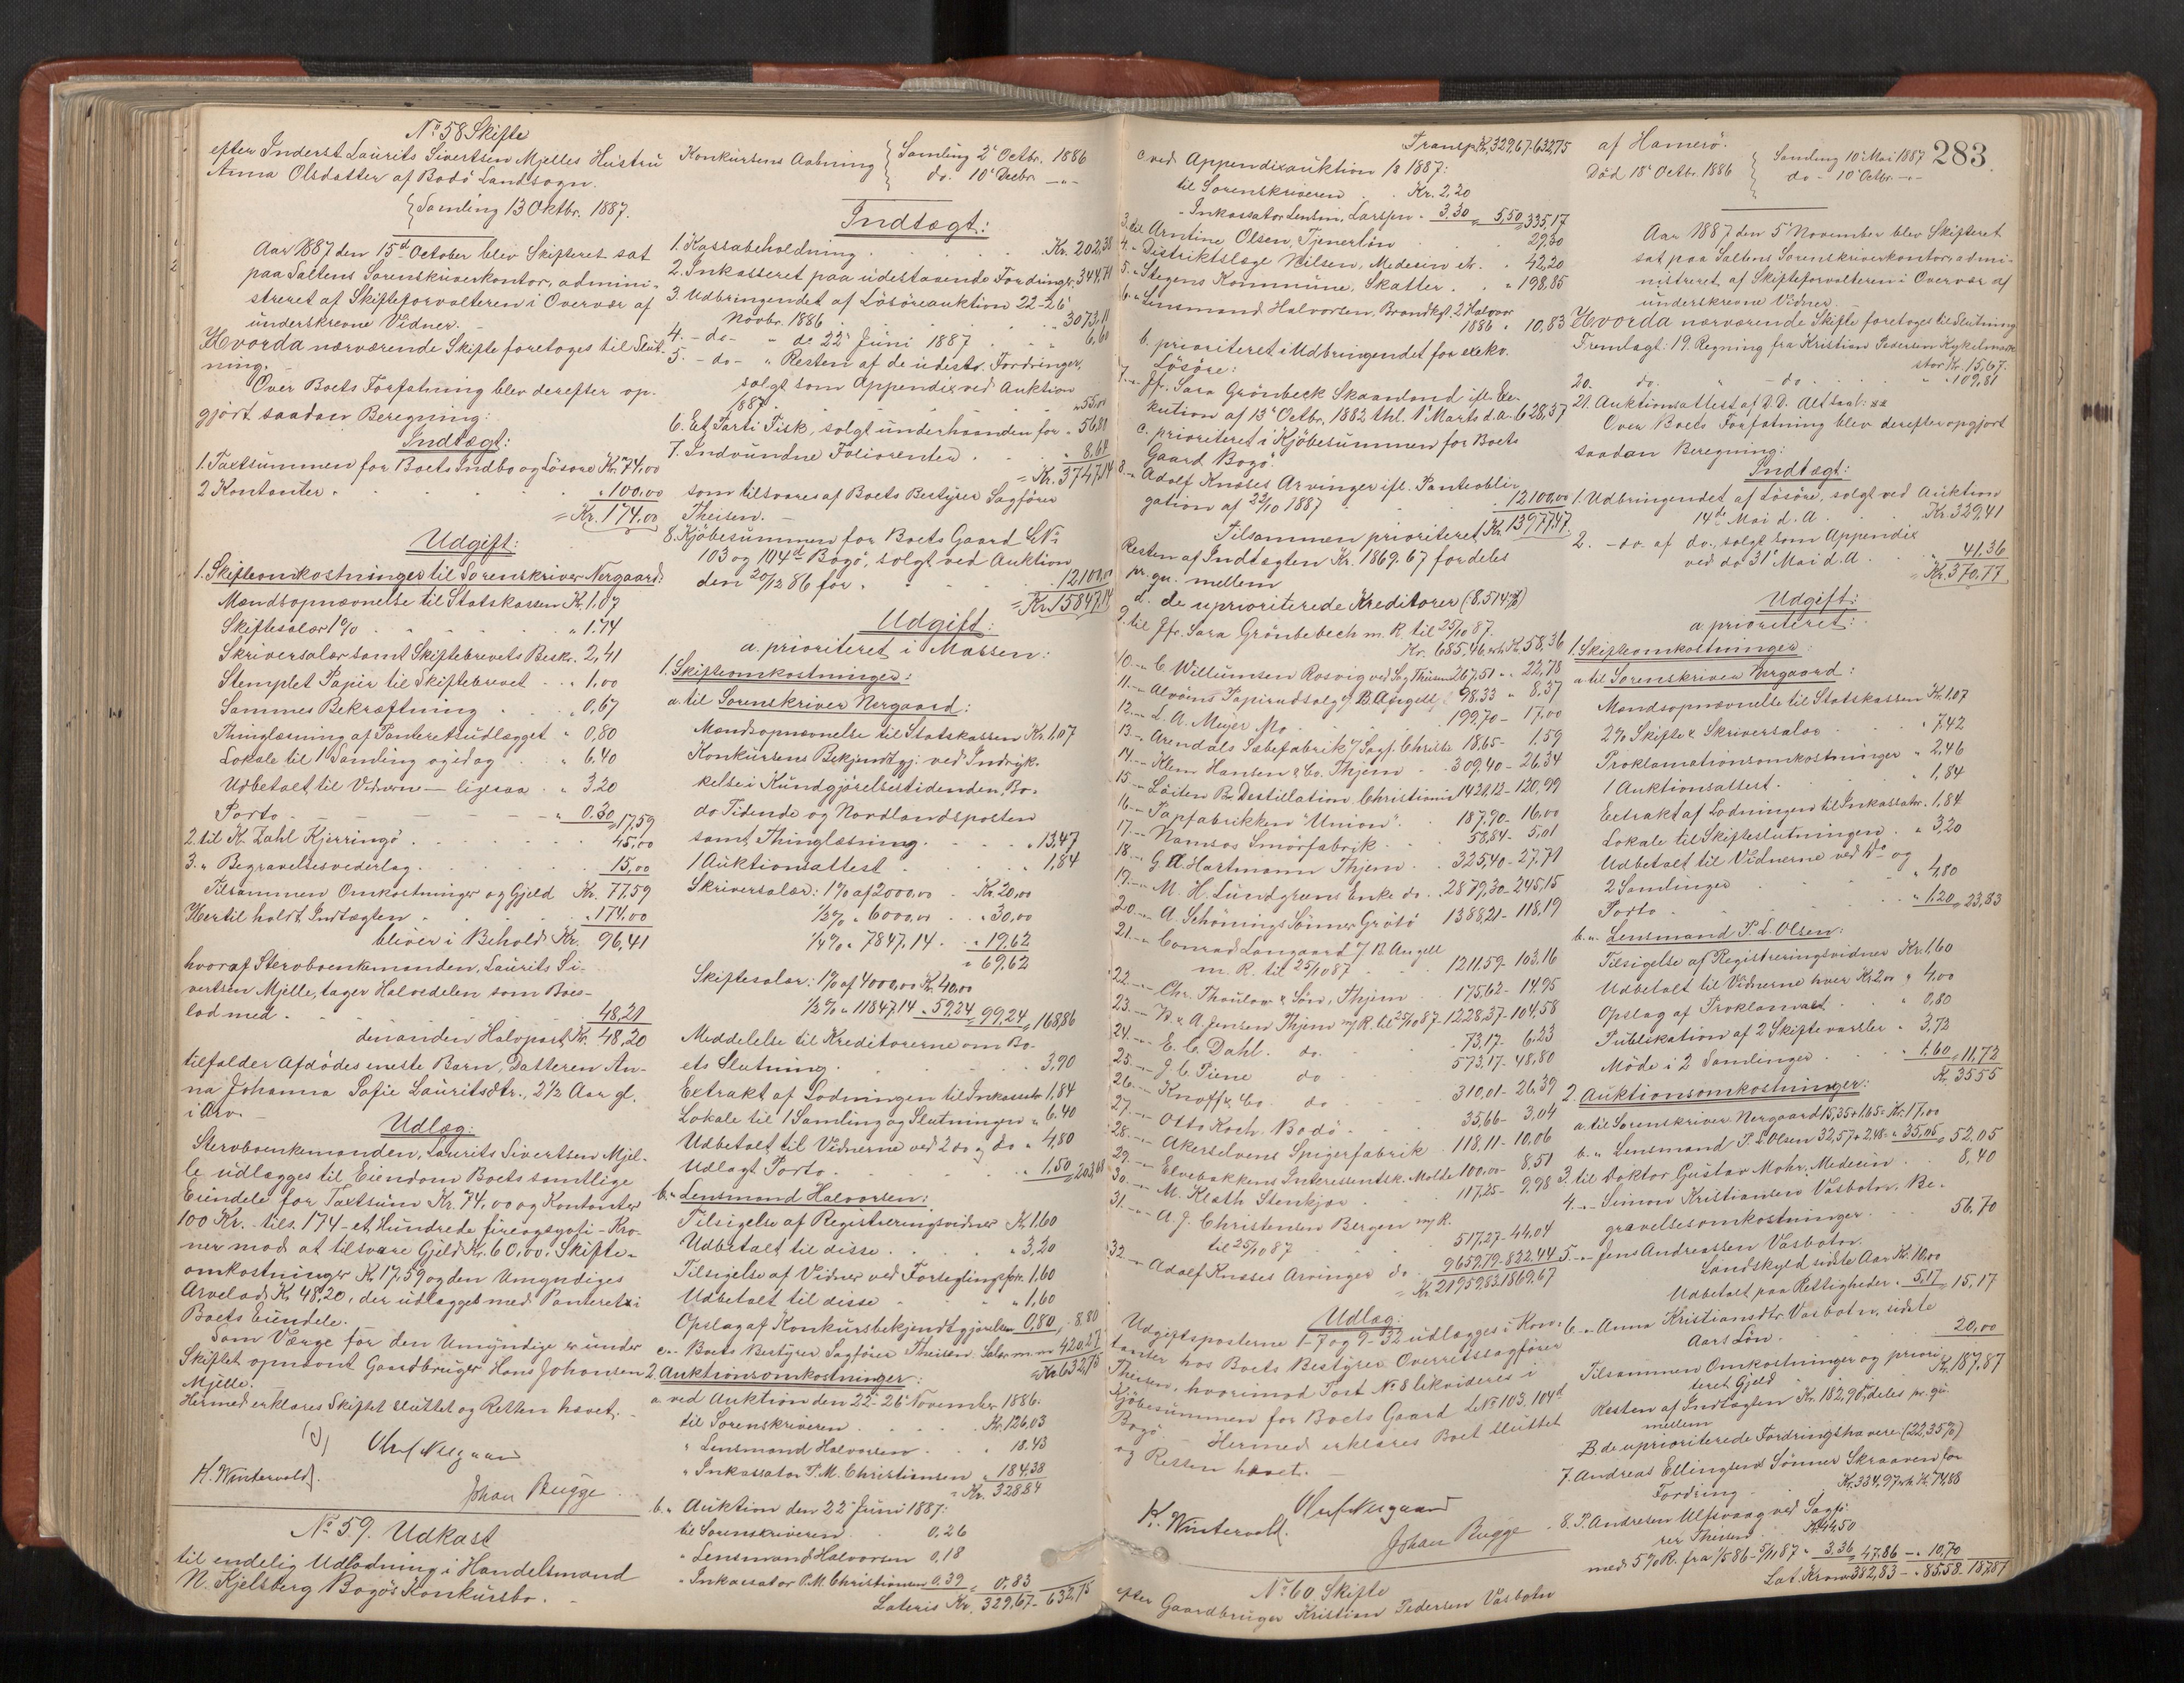 No 58 Skifte
efter Inderst Laurits Sivertsen Mjelles Hustru
Anna Olsdatter af Bodö Landsogn.
Samling 13 Oktbr. 1887.
Aar 1887 den 15de October blev Skifteret sat
paa Saltens Sorenskriverkontor, admini-
streret af Skifteforvalteren i Overvær af
underskrevne Vidner.
Hvorda nærværende Skifte foretoges til Slut-
ning.
Over Boets Forfatning blev derefter op-
gjort saadan Beregning:
Indtægt:
1. Taxtsummen for Boets Indbo og Lösöre Kr. 74,00
2 Kontanter . . . " 100,00
= Kr. 174,00
Udgift:
1. Skifteomkostninger til Sorenskriver Nergaard:
Mændsopnævnelse til Statskassen Kr. 1,07
Skiftesalær 1% " 1.74
Skriversalær samt Skiftebrevets Beskr. 2,41
Stemplet Papir til Skiftebrevet " 1,00
Sammes Bekræftning " 0,67
Thinglæsning af Panteretsudlægget " 0,80
Lokale til 1 Samling og idag " 6.40
Udbetalt til Vidnerne – ligesaa " 3.20
Porto " 0.30 17,59
2. til K. Zahl Kjerringö 45,00
3. " Begravelsesvederlag 15,00
Tilsammen Omkostninger og Gjeld Kr. 77,59
Hertil holdt Indtægten " 174,00
bliver i Behold Kr. 96,41
hvoraf Stervboenkemanden, Laurits Si-
vertsen Mjelle, tager Halvdelen som Boes-
lod med 48,21
den anden Halvpart Kr. 48,20
tilfalder Afdödes eneste Barn, Datteren An-
na Johanna Sofie Lauritsdtr., 2½ Aar gl.
i Arv.
Udlæg:
Stervboenkemanden, Laurits Sivertsen Mjel-
le udlægges til Eiendom Boets samtlige
Eiendele for Taxtsum Kr. 74,00 og Kontanter
100 Kr. – tils. 174 – et Hundrede fireogsyvti – Kro-
ner mod at tilsvare Gjeld Kr. 60,00, Skifte-
omkostninger Kr. 17,59 og den Umyndiges
Arvelod Kr. 48,20, der udlægges med Panteret i
Boets Eiendele.
Som Værge for den Umyndige er under
Skiftet opnævnt Gaardbruger Hans Johansen
Mjelle.
Hermed erklæres Skiftet sluttet og Retten hævet.
Oluf Nergaard
K. Wintervold.
Johan Bugge
No 59. Udkast
til endelig Udlodning i Handelsmand
N. Kjelsberg Bogös Konkursbo.
Konkursens Aabning { Samling 2' Octbr. 1886
do. 10' Decbr. –"–
Indtægt:
1. Kassabeholdning Kr. 202,38
2. Inkasseret paa udestaaende Fordringer " 344,71
3. Udbringendet af Lösöreauktion 22–26'
Novbr. 1886 " 3073,11
4. – do – " do 22' Juni 1887 " 6,60
5. – do – " Resten af de udest. Fordringer,
solgt som Appendix ved Auktion
1887 " 55,00
6. Et Parti Fisk, solgt underhaanden for " 56,81
7. Indvundne Foliorenter " 8,64
= Kr. 3747,14
som tilsvares af Boets Bestyrer Sagförer
Theisen. –
8. Kjöbesummen for Boets Gaard LNo
103 og 104d Bogö, solgt ved Auktion
den 20/12 86 for 12100,00
= Kr. 15847,14
Udgift:
a. prioriteret i Massen:
1. Skifteomkostninger:
a. til Sorenskriver Nergaard:
Mændsopnævnelse til Statskassen Kr. 1,07
Konkursens Bekjendtgj. ved Indryk-
kelse i Kundgjörelsestidenden, Bo-
dö Tidende og Nordlandsposten
samt Thinglæsning " 13,47
1 Auktionsattest " 1,84
Skriversalær: 1% af 2000,00 Kr. 20,00
½% " 6000,00 " 30,00
¼% " 7847.14 " 19,62
" 69,62
Skiftesalær: 1% af 4000,00 Kr. 40,00
½% " 11847,14 " 59,24 = 99,24 = 168,86
Meddelelse til Kreditorerne om Bo-
ets Slutning 3,90
Extrakt af Lodningen til Inkassator 1,84
Lokale til 1 Samling og Slutningen " 6.40
Udbetalt til Vidnerne ved 2 do og do " 4,80
Udlagt Porto " 1,50 203,68
b. " Lensmand Halvorsen:
Tilsigelse af Registreringsvidner Kr. 1.60
Udbetalt til disse " 3,20
Tilsigelse af Vidner ved Forseglingsforr. 1,60
Udbetalt til disse " 1,60
Opslag af Konkursbekjendtgjörelsen 0,80 " 8.80
c. " Boets Bestyrer Sagförer Theisen Salær m.m 420,27
= Kr. 632,75
2. Auktionsomkostninger:
a ved Auktion den 22–26' November 1886:
til Sorenskriveren Kr. 126,03
" Lensmand Halvorsen " 18.43
" Inkassator P. M. Christiansen " 184,38
= Kr. 328,84
b. " Auktion den 22' Juni 1887:
til Sorenskriveren 0,26
" Lensmand Halvorsen 0,18
" Inkassator P. M. Christiansen 0,39 = 0,83
Lateris Kr. 329,67 – 632,75
Transp. Kr. 329,67 – 632,75
c. ved Appendixauktion 1887:
til Sorenskriveren Kr. 2,20
" Inkassator Lensm. Larssen " 3.30 = 5,50 335,17
3. til Arntine Olsen, Tjenerlön 29,30
4. " Distriktslæge Nilsen, Medicin etc. " 42,20
5. " Stegens Kommune, Skatter " 198,85
6. " Lensmand Halvorsen, Brandkgt. 2 Halvaar
1886 " 10,83
b. prioriteret i Udbringendet for exekv.
Lösöre:
7. " Jfr. Sara Grönbeck Skaanland ifl. Exe-
kution af 13' Octbr. 1882 thl. 1' Marts d. a. 628,37
c. prioriteret i Kjöbesummen for Boets
Gaard Bogö:
8. " Adolf Knöses Arvinger ifl. Panteobli-
gation af 22/10 1887 12100,00
Tilsammen prioriteret Kr. 13977,47
Resten af Indtægten Kr. 1869,67 fordeles
pr. qu. mellem
d. de uprioriterede Kreditorer (8,514%)
9. til Jfr. Sara Grönbebech m. R. til 25/10 87.
Kr. 685,46 erh. Kr. 58,36
10. " C. Willumsen Rosvig ved Sag. Theisen 267,51 " 22,78
11. " Alvöens Papirudsalg v/ B. Angell 98.33 " 8,37
12. " L. A. Meyer Mo 199,70 – 17,00
13. " Arendals Sæbefabrik v/ Sagf. Christie 18,65 – 1.59
14. " Klem Hansen & Co. Thjem 309,40 – 26.34
15. " Löiten Br. Destillation Christiania 1421,12 – 120,99
16. " Papfabrikken "Union" 187,90 – 16.00
17. " Namsos Smörfabrik 58,84 – 5,01
18. " G. A. Hartmann Thjem 325,40 – 27.71
19. " M. H. Lundgreens Enke do. 2879,30 – 245,15
20. " A. Schönings Sönner Grötö 1388,21 – 118,19
21. " Conrad Langaard v/ B. Angell
m. R. til 25/10 87 1211,59 – 103.16
22. " Chr. Thaulow & Sön, Thjem 175,62 – 14.95
23. " N. & A. Jensen Thjem m/R. til 25/10 87 1228,37 – 104,58
24. " E. C. Dahl. do. 73,17 – 6.23
25. " J. C. Piene do 573,17 – 48,80
26. " Knoff & Co. do 310,01 – 26,39
27. " Otto Koch Bodö 35,66 – 3,04
28. " Akerselvens Spigerfabrik 118,11 – 10,06
29. " Elvebakkens Interessentsk. Molde 100,00 – 8,51
30. " M. Klæth Stenkjær 117,25 – 9,98
31. " A. J. Christensen Bergen m/R.
til 25/10 87 517,27 – 44,04
32. " Adolf Knöses Arvinger do. 9659,79 – 822.44
= Kr. 21959,83. 1869,67
Udlæg:
Udgiftsposterne 1–7 og 9–32 udlægges i Kon-
tanter hos Boets Bestyrer Overretssagförer
Theisen, hvorimod Post No 8 likvideres i
Kjöbesummen for Boets Gaard LNo 103, 104d
Bogö.
Hermed erklæres Boet sluttet
og Retten hævet. –
Oluf Nergaard
K. Wintervold.
Johan Bugge
No 60 Skifte
efter Gaardbruger Kristian Pedersen Vasbotn
af Hamerö.
283.
Död 18' Octbr. 1886 { Samling 10' Mai 1887
do – 10' Octbr. –"–
Aar 1887 den 5' November blev Skifteret
sat paa Saltens Sorenskriverkontor, admi-
nistreret af Skifteforvalteren i Overvær af
underskrevne Vidner.
Hvorda nærværende Skifte foretoges til Slutning
Fremlagt: 19. Regning fra Kristian Pedersen
stor Kr. 15,67.
20. do. " – do – " 109,81
21. Auktionsattest af D. D. Alt saal:
Over Boets Forfatning blev derefter opgjort
saadan Beregning:
Indtægt:
1. Udbringendet af Lösöre, solgt ved Auktion
14de Mai d. A. Kr. 329,41
2. – do. af do., solgt som Appendix
ved do 31' Mai d. A. " 41.36
= Kr. 370,77
Udgift:
a. prioriteret:
1. Skifteomkostninger:
a. til Sorenskriver Nergaard:
Mændsopnævnelse til Statskassen Kr. 1.07
2% Skifte & Skriversalær " 7,42
Proklamationsomkostninger " 2,46
1 Auktionsattest. " 1,84
Extrakt af Lodningen til Inkassator. 1,84
Lokale til Skifteslutningen " 3,20
Udbetalt til Vidnerne ved do og
2 Samlinger " 4,80
Porto " 1.20 = 23,83
b. " Lensmand P. L. Olsen:
Tilsigelse af Registreringsvidner Kr. 1.60
Udbetalt til Vidnerne hver Kr. 2,00 " 4,00
Opslag af Proklamaet " 0,80
Publikation af 2 Skiftevarsler " 3,72
Möde i 2 Samlinger " 1.60 = 11,72
Kr. 35,55
2. Auktionsomkostninger:
a. til Sorenskriver Nergaard 15,35 + 1.65 = Kr. 17,00
b. " Lensmand P. L. Olsen 32,57 + 2.48 = " 35,05 = 52,05
3. til Doktor Gustav Mohr, Medicin 8,40
4. " Simon Kristiansen Vasbotn, Be-
gravelsesomkostninger 56.70
5. " Jens Andreassen Vasbotn.
Landskyld sidste Aar Kr. 10,00
Udbetalt paa Rettigheder " 5,17 = 15,17
6. " Anna Kristiansdtr. Vasbotn, sidste
Aars Lön 20,00
Tilsammen Omkostninger og priori-
teret Gjeld Kr. 187,87
Resten af Indtægten Kr. 182,90, deles pr. qu.
mellem
B. de uprioriterede Fordringshavere: (22,35%)
7. Andreas Ellingsens Sönner Skraaven for
Fordring Kr. 334,97 erh. Kr. 74,88
8. P. Andresen Ulfsvaag ved Sagfö-
rer Theisen Kr. 44,50
med 5% R. fra 1/5 86 – 5/11 87 " 3,36 = 47.86 – " 10,70
Lat. Kroner 382,83 – " 85.58. 187,87